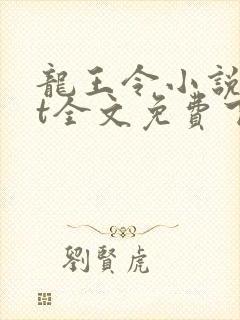 龍王令小說
t全文免費
劉賢虎